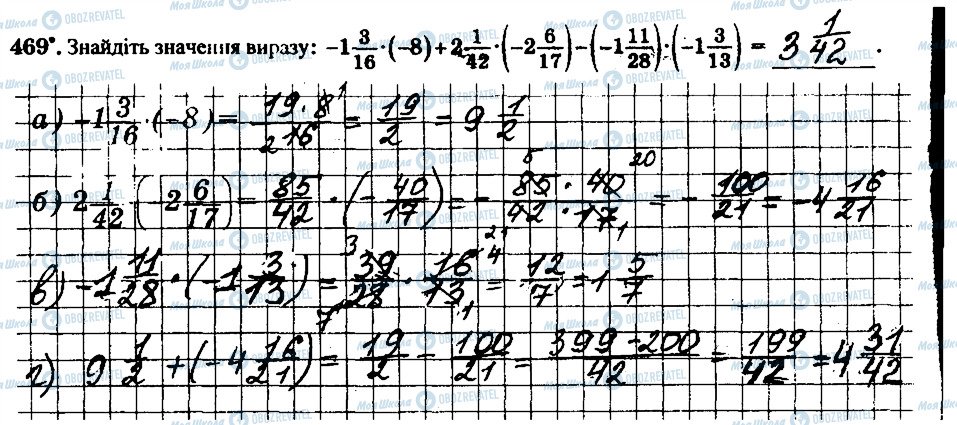 469°. Знайдіть значення виразу: −1 3/16 · (−8) + 2 1/42 · (−2 6/17) − (−1 11/28) · (−1 3/13) = 3 1/42 .
а) −1 3/16 · (−8) = 19 · 8 1 / 2 16 = 19/2 = 9 1/2
б) 2 1/42 · (−2 6/17) = 85/42 · (−40/17) = − 5 85 · 40 20 / 21 42 · 17 1 = − 100/21 = −4 16/21
в) −1 11/28 · (−1 3/13) = 3 39 / 7 28 · 16 4 / 13 1 = 12/7 = 1 5/7
г) 9 1/2 + (−4 16/21) = 19/2 − 100/21 = 399 − 200 / 42 = 199/42 = 4 31/42